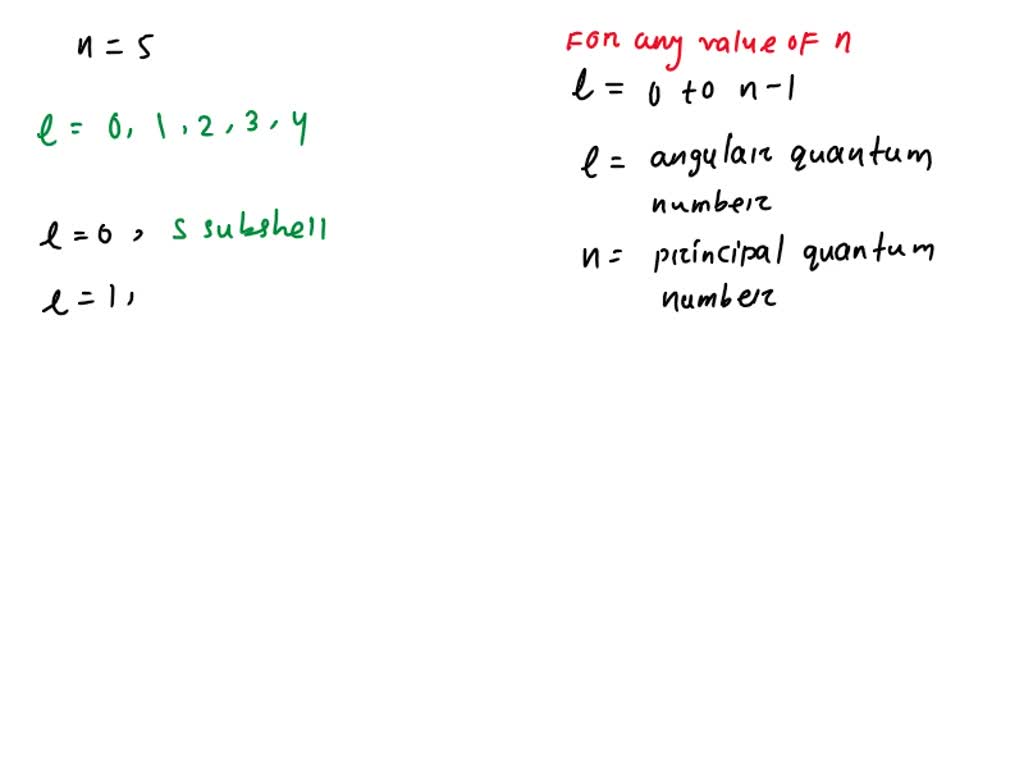 n = 5
l = 0, 1, 2, 3, 4
l = 0, s subshell
l = 1,
For any value of n
l = 0 to n-1
l = angular quantum
number
n = principal quantum
number